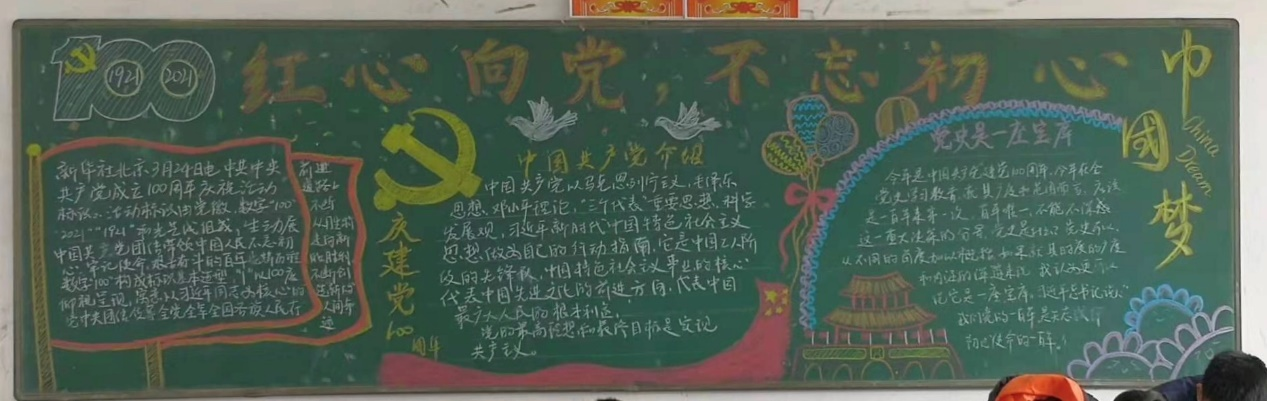 100
1921 2021
红心向党，不忘初心
巾国梦
China Dream
新华社北京3月24日电 中共中央
共产党成立100周年庆祝活动
标识。活动标识由党徽、数字“100”
“2021”“1921”和光芒线组成，生动展
中国共产党团结带领中国人民不忘初
心、牢记使命、艰苦奋斗的百年
数字“100”构成标识基本造型
仰视呈现，以习近平同志为核心的
党中央团结带领全党全军全国各族人民在
前进
道路上
不断
庆建党100周年
中国共产党介绍
中国共产党以马克思列宁主义，毛泽东
思想、邓小平理论，“三个代表”重要思想、科学
发展观，习近平新时代中国特色社会主义
思想，做为自己的行动指南，它是中国工人阶
级的先锋队，中国特色社会主义事业的核心
代表中国先进文化的前进方向，代表中国
最广大人民的根本利益，
党的最高理想和最终目标是实现
共产主义。
党史是一座宝库
今年是中国共产党建党100周年，今年在全
党史学习教育
是一百年来第一次，百年唯一，不能不深感
这一重大决策的分量
从不同的角度加以概括
我认为更可以
说它是一座宝库。习近平总书记说
我们党的一百年是
初心使命的一百年。